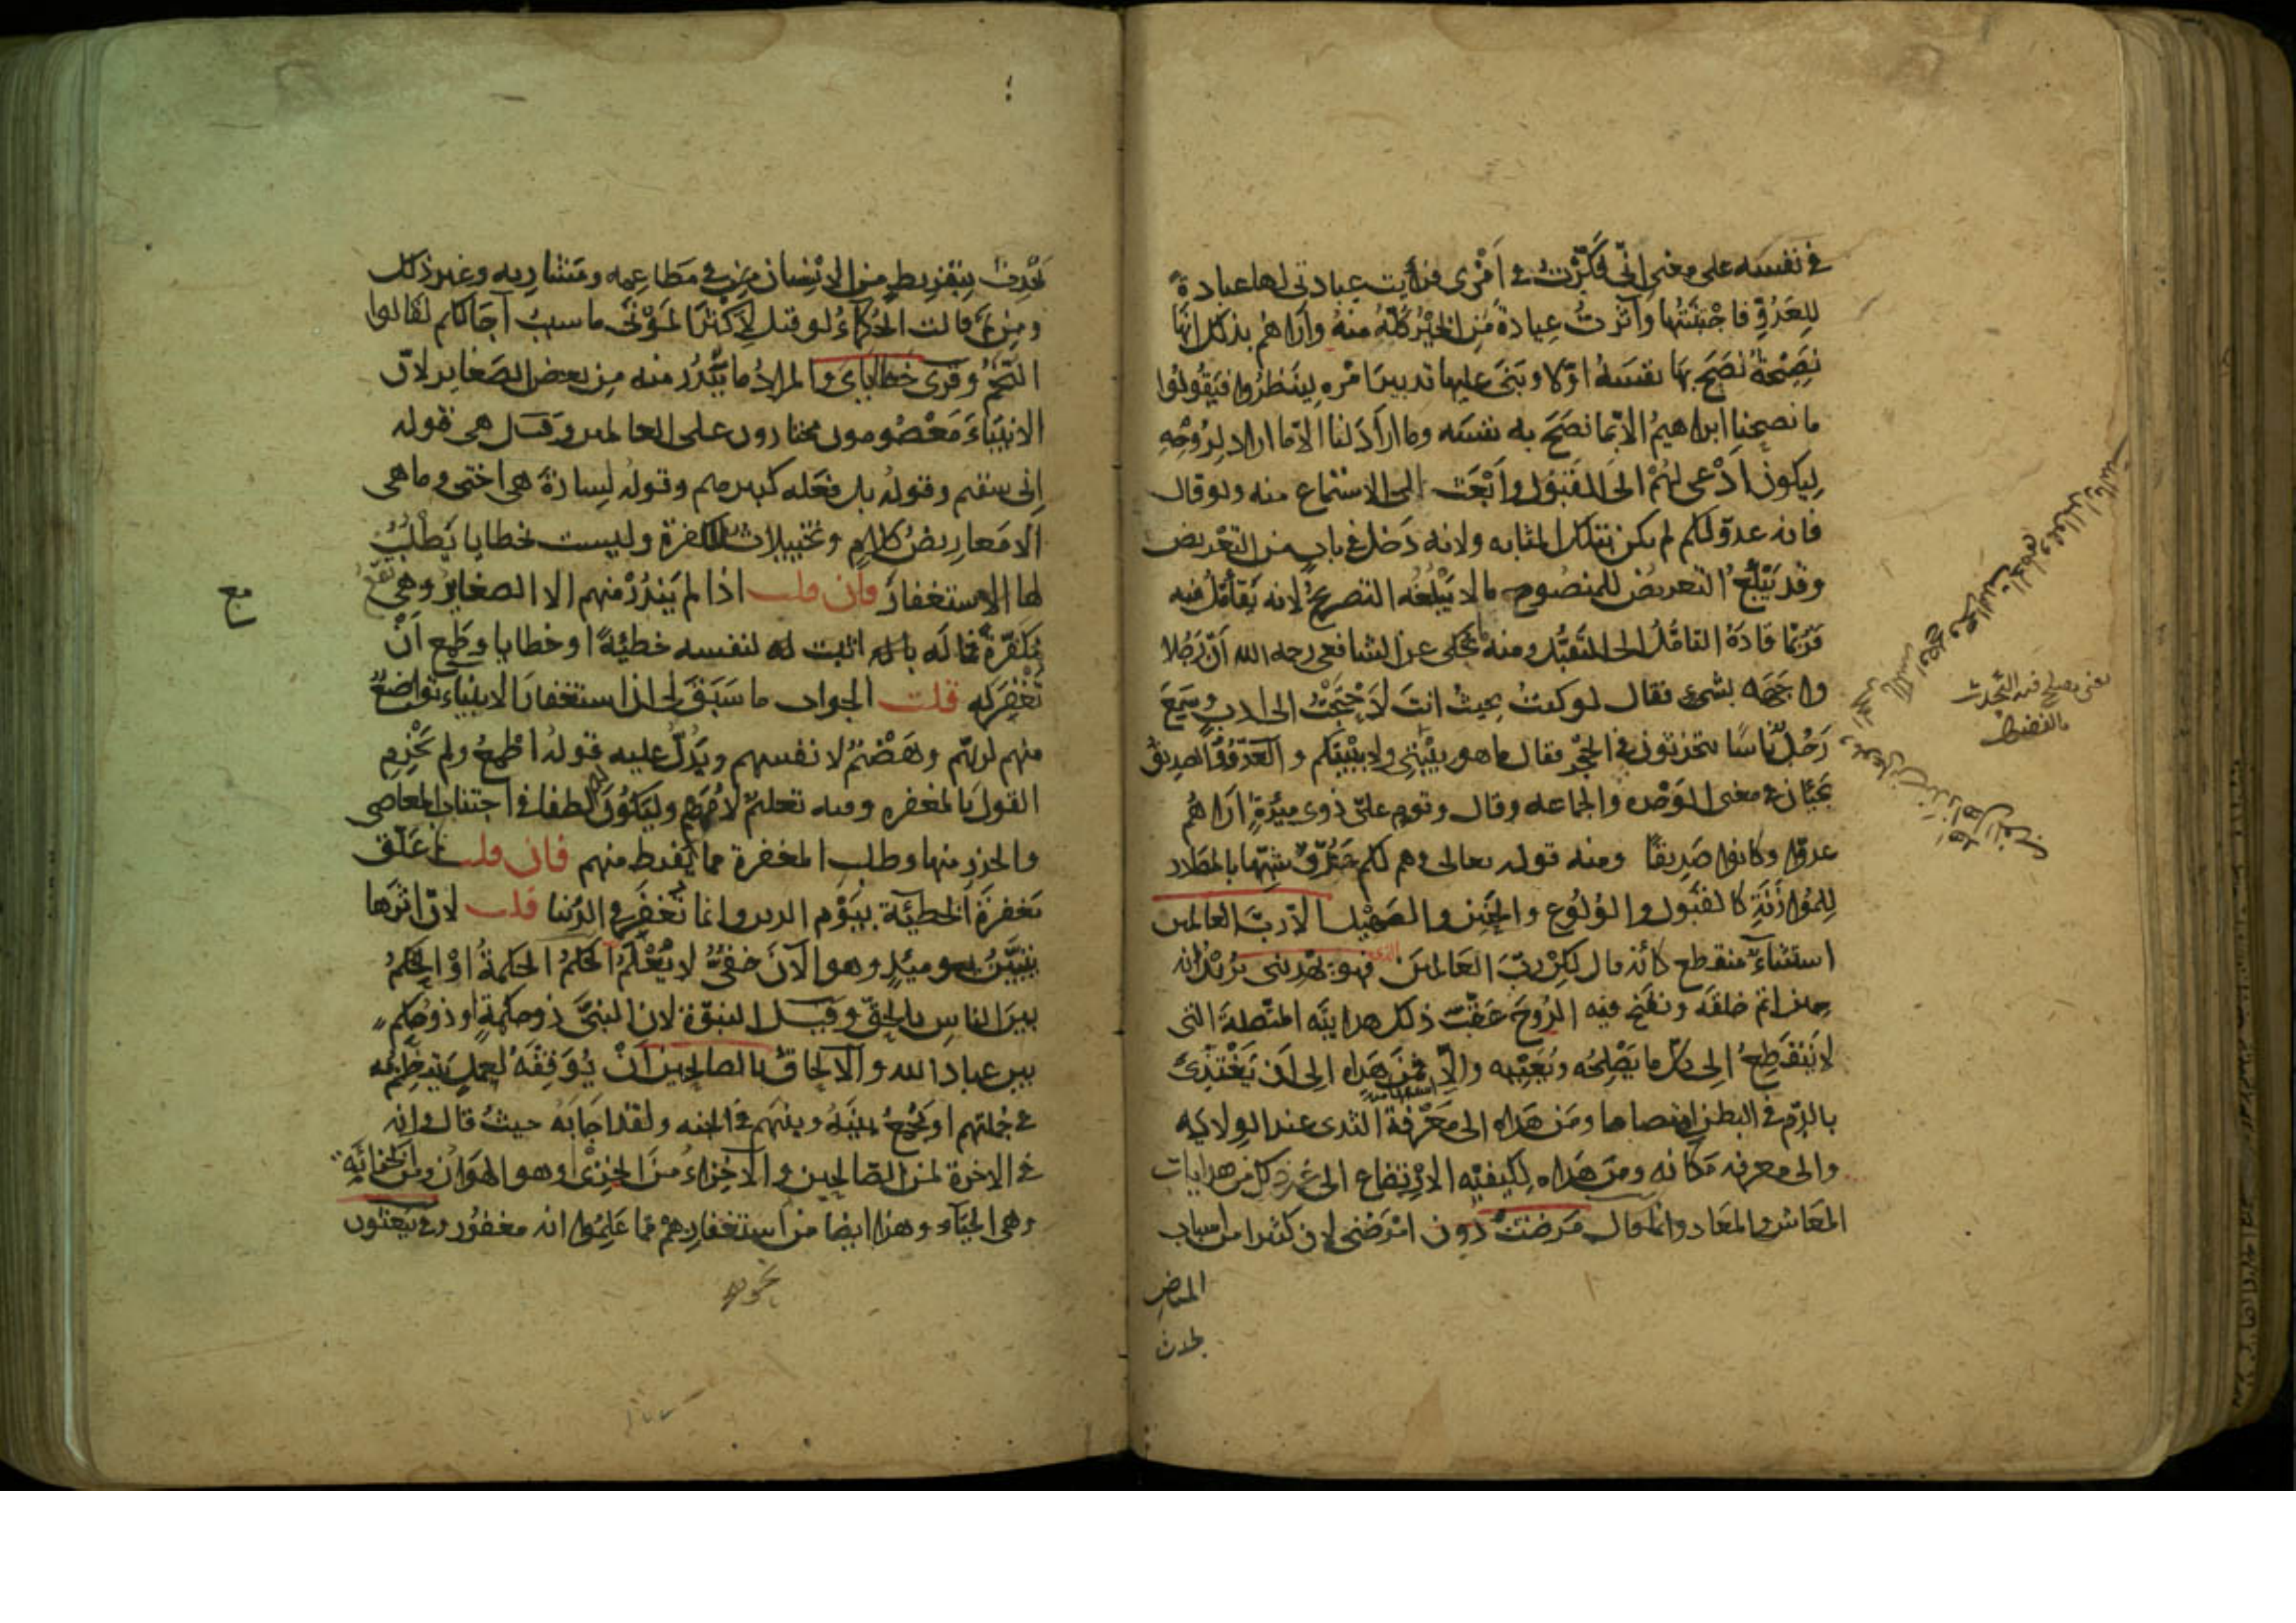 في نفسه على معنى اني فكّرت في أمري فرأيت عبادتي لها عبادة
للعدوّ فاجتنبتها وآثرت عبادة من الخير كلّه منه وأراهم بذلك انها
نصيحة نصح بها نفسه اوّلا وبنى عليها تدبير امره لينظروا فيقولوا
ما نصحنا ابراهيم الا بما نصح به نفسه وما اراد لنا الا ما اراد لروحه
ليكون ادعى لهم الى القبول وابعث الى الاستماع منه ولو قال
فانه عدوّ لكم لم يكن بتلك المثابه ولانه دخل في باب من التعريض
وقد يبلغ التعريض للمنصوح ما لا يبلغه التصريح لانه يتأمّل فيه
فربّما قاده التامّل الى التقبّل ومنه ما يحكى عن الشافعي رحمه الله أنّ رجلا
واجهه بشيء فقال لو كنت بحيث انت لاحتجت الى ادب وسمع
رجل ناسا يتحدثون في الحجر فقال ما هو ببيتي ولا ببيتكم والعدوّ والصديق
يجيئان في معنى الوحده والجماعه وقال وقوم عليّ ذوي مئرة اراهم
عدوّا وكانوا صديقا ومنه قوله تعالى وهم لكم عدوّ شبّها بالمصادر
للموازنة كالقبول والولوع والحنين والصهيل الّا ربّ العالمين
استثناء منقطع كأنه قال لكن ربّ العالمين الذي فهو يهديني يريد انه
حين اتم خلقه ونفخ فيه الروح عقّب ذلك هدايته المتّصلة التي
لا تنقطع الى كلّ ما يصلحه ويعنيه والّا فمن هداه الى أن يغتذي
بالدّم في البطن امتصاصا ومن هداه الى معرفة الثدي عند الولادة
والى معرفه مكانه ومن هداه لكيفيّه الارتضاع الى غير ذلك من هدايات
المعاش والمعاد وانما قال مرضت دون امرضني لان كثيرا من اسباب
المرض
يحدث
يعنى يصلح فيه التحدث
يحدث بتفريط من الانسان في مطاعمه ومشاربه وغير ذلك
ومن ثمّ قالت الحكماء لو قيل لأكثر الموتى ما سبب آجالكم لقالوا
التخم وقرئ خطاياي والمراد ما يندر منه من بعض الصغاير لانّ
الانبياء معصومون مختارون على العالمين وقيل هي قوله
إنى سقيم وقوله بل فعله كبيرهم وقوله لسارة هي اختي وما هي
الا معاريض كلام وتخييلات للكفرة وليست بخطايا يطلب
لها الاستغفار فان قلت اذا لم يندر منهم الا الصغاير وهي تقع
مكفّرة فما له اثبت لنفسه خطيئة او خطايا وطمع أن
تغفر له قلت الجواب ما سبق لى ان استغفار الانبياء تواضع
منهم لربّهم وهضم لانفسهم ويدلّ عليه قوله اطمع ولم يجزم
القول بالمغفره وفيه تعليم لاممهم وليكون لطفا في اجتناب المعاصي
والحذر منها وطلب المغفرة مما يفرط منهم فان قلت لم علّق
مغفرة الخطيئة بيوم الدين وانما تغفر في الدنيا قلت لانّ اثرها
يتبيّن يومئذ وهو الآن خفيّ لا يعلم الحكم الحكمة أو الحكم
بين الناس بالحقّ وقيل النبوّة لان النبيّ ذو حكمة او ذو حكم
بين عباد الله والالحاق بالصالحين أن يوفّقه لعمل ينتظم به
في جملتهم او يجمع بينه وبينهم في الجنه ولقد اجابه حيث قال وانه
في الاخرة لمن الصّالحين والاخزاء من الخزي وهو الهوان ومن الخزاية
وهي الحياء وهذا ايضا من استغفارهم مما علموا انه مغفور وفي يبعثون
مع